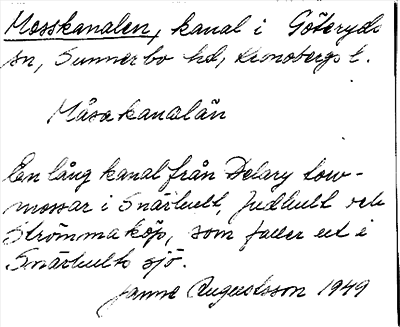 Mosskanalen, kanal i Göteryds
sn, Sunnerbo hd, Kronobergs l.
Måsakanalän
En lång kanal från Delary torv-
mossar i Snärhult, Judhult och
Strömmaköp, som faller ut i
Snärhults sjö.
Janne Augustsson 1949